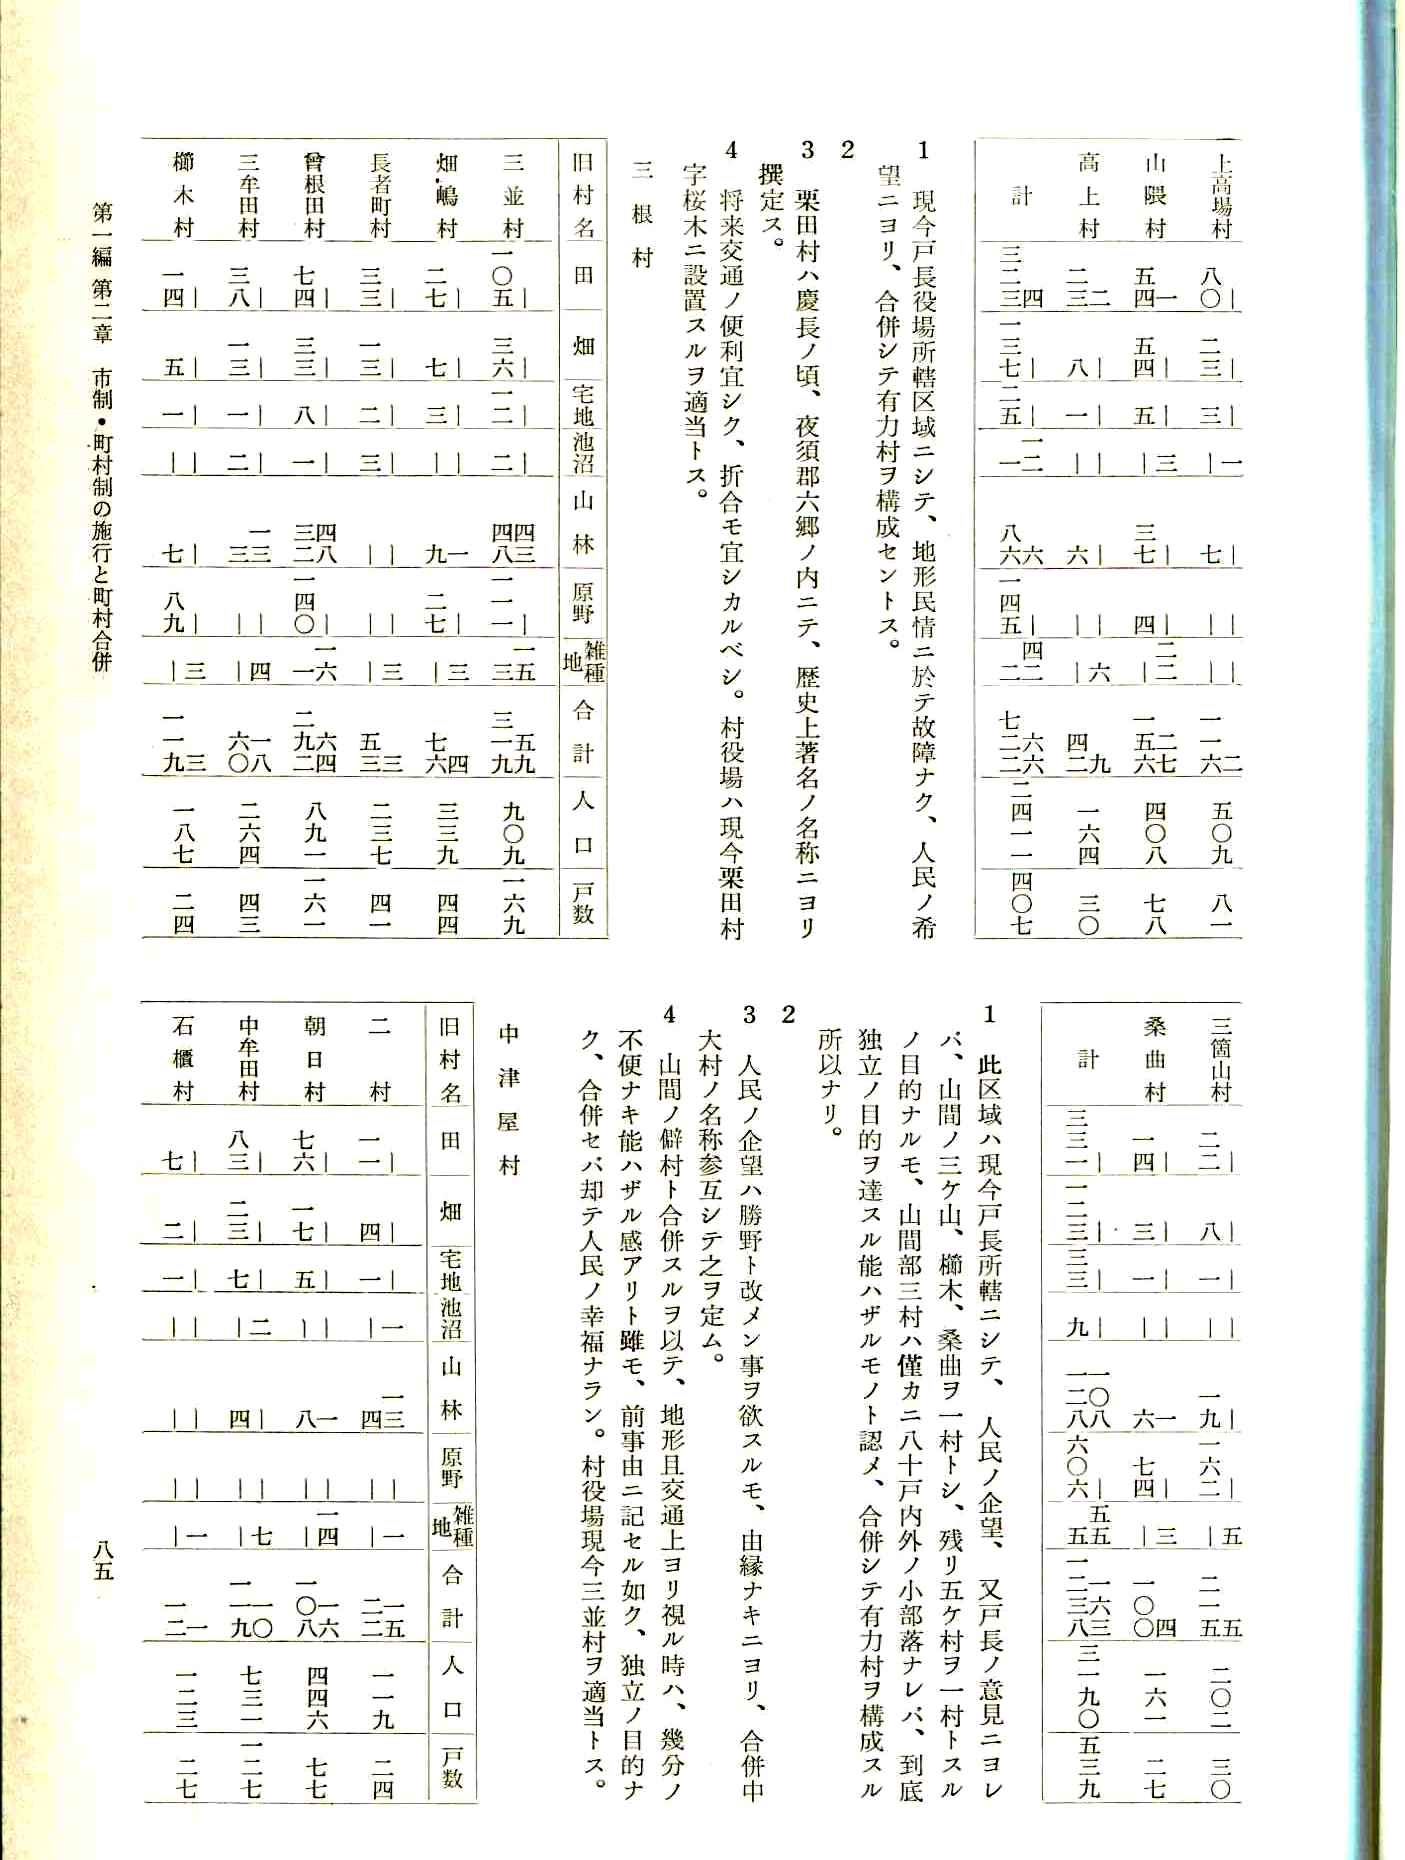 上高場村 ｜八〇 ｜二三 ｜三 一｜ ｜七 ｜｜ ｜｜ 二 一一六 五〇九 八一
山隈村 一 五四 ｜五四 ｜五 三｜ ｜三七 ｜四 二二｜ 二七 一五六 四〇八 七八
高上村 二 二三 ｜八 ｜一 ｜｜ ｜六 ｜｜ 六｜ 九 四二 一六四 三〇
計 四 三二三 ｜一三七 ｜二五 一二 一 六 八六 ｜一四五 四二 二 六六 七二二 二四一一 四〇七
1　現今戸長役場所轄区域ニシテ、地形民情ニ於テ故障ナク、人民ノ希
望ニヨリ、合併シテ有力村ヲ構成セントス。
2
3　栗田村ハ慶長ノ頃、夜須郡六郷ノ内ニテ、歴史上著名ノ名称ニヨリ
撰定ス。
4　将来交通ノ便利宜シク、折合モ宜シカルベシ。村役場ハ現今栗田村
字桜木ニ設置スルヲ適当トス。
三根村
旧村名 田 畑 宅地 池沼 山林 原野 雑種地 合計 人口 戸数
三並村 ｜一〇五 ｜三六 ｜一二 ｜二 四三 四八 ｜一一一 一五 三 五九 三一九 九〇九 一六九
畑嶋村 ｜二七 ｜七 ｜三 ｜｜ 一 九 ｜二七 三｜ 四 七六 三三九 四四
長者町村 ｜三三 ｜一三 ｜二 ｜三 ｜｜ ｜｜ 三｜ 三 五三 二三七 四一
曾根田村 ｜七四 ｜三三 ｜八 ｜一 四八 三二 ｜一四〇 一六 一 六四 二九二 八九一 一六一
三牟田村 ｜三八 ｜一三 ｜一 ｜二 一三 三 ｜｜ 四｜ 一八 六〇 二六四 四三
櫛木村 ｜一四 ｜五 ｜一 ｜｜ ｜七 ｜八九 三｜ 三 一一九 一八七 二四
三箇山村 ｜二二 ｜八 ｜一 ｜｜ ｜一九 ｜一六二 五｜ 五 二一五 二〇二 三〇
桑曲村 ｜一四 ｜三 ｜一 ｜｜ 一 六 ｜七四 三｜ 四 一〇〇 一六一 二七
計 ｜三三一 ｜一二三 ｜三三 ｜九 一〇八 一二八 ｜六〇六 五五 五 一六三 一二三八 三一九〇 五三九
1　此区域ハ現今戸長所轄ニシテ、人民ノ企望、又戸長ノ意見ニヨレ
バ、山間ノ三ケ山、櫛木、桑曲ヲ一村トシ、残リ五ケ村ヲ一村トスル
ノ目的ナルモ、山間部三村ハ僅カニ八十戸内外ノ小部落ナレバ、到底
独立ノ目的ヲ達スル能ハザルモノト認メ、合併シテ有力村ヲ構成スル
所以ナリ。
2
3　人民ノ企望ハ勝野ト改メン事ヲ欲スルモ、由縁ナキニヨリ、合併中
大村ノ名称参互シテ之ヲ定ム。
4　山間ノ僻村ト合併スルヲ以テ、地形且交通上ヨリ視ル時ハ、幾分ノ
不便ナキ能ハザル感アリト雖モ、前事由ニ記セル如ク、独立ノ目的ナ
ク、合併セバ却テ人民ノ幸福ナラン。村役場現今三並村ヲ適当トス。
中津屋村
旧村名 田 畑 宅地 池沼 山林 原野 雑種地 合計 人口 戸数
二村 ｜一一 ｜四 ｜一 一｜ 一三 四 ｜｜ 一｜ 一五 二二 一一九 二四
朝日村 ｜七六 ｜一七 ｜五 ｜｜ 一 八 ｜｜ 一四｜ 一六 一〇八 四四六 七七
中牟田村 ｜八三 ｜二三 ｜七 二｜ ｜四 ｜｜ 七｜ 一〇 一一九 七三一 一二七
石櫃村 ｜七 ｜二 ｜一 ｜｜ ｜｜ ｜｜ 一｜ 一 一二 一二三 二七
第一編 第二章　市制・町村制の施行と町村合併
八五